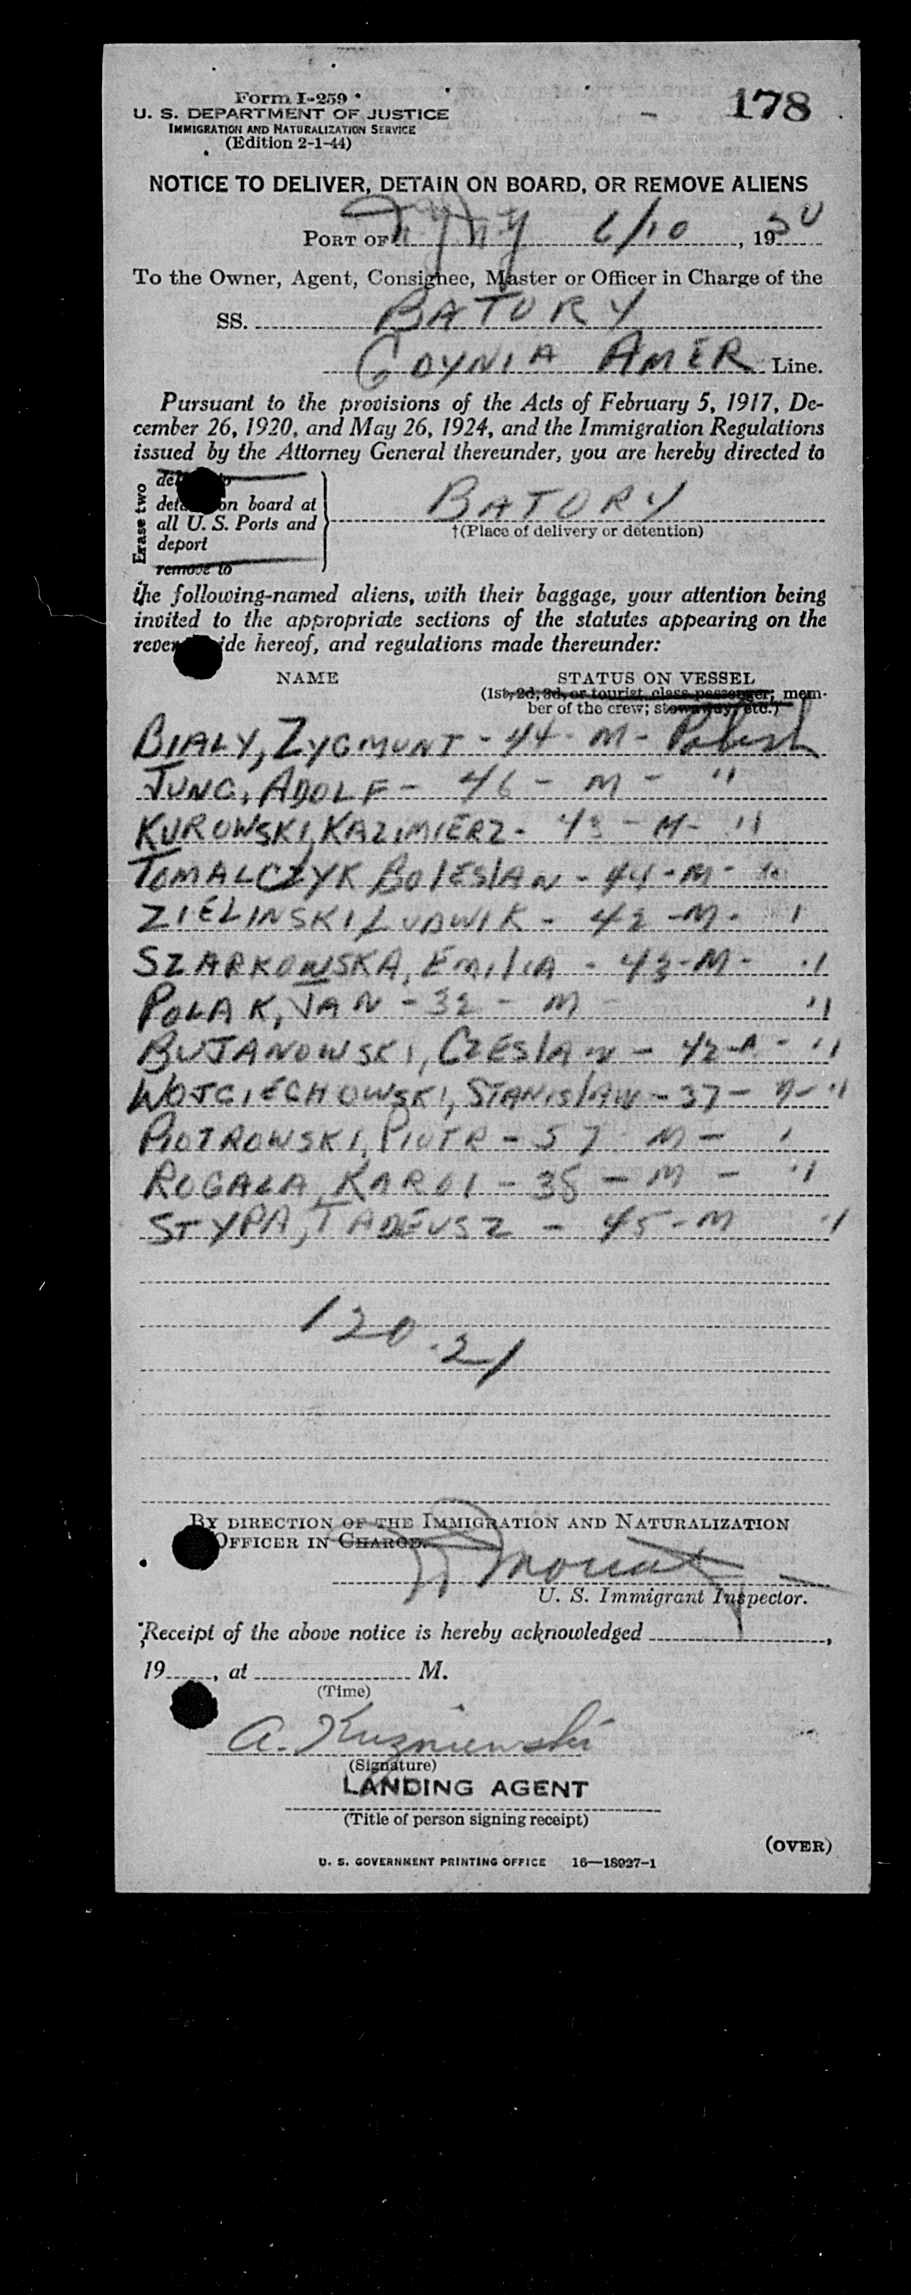 Form I-259
U. S. DEPARTMENT OF JUSTICE
IMMIGRATION AND NATURALIZATION SERVICE
(Edition 2-1-44)
178
NOTICE TO DELIVER, DETAIN ON BOARD, OR REMOVE ALIENS
PORT OF N.Y. N.Y. 6/10, 1950
To the Owner, Agent, Consignee, Master or Officer in Charge of the
SS. BATORY
GDYNIA AMER Line.
Pursuant to the provisions of the Acts of February 5, 1917, De-
cember 26, 1920, and May 26, 1924, and the Immigration Regulations
issued by the Attorney General thereunder, you are hereby directed to
Erase two
detain on board at
all U. S. Ports and
deport
remove to
BATORY
†(Place of delivery or detention)
the following-named aliens, with their baggage, your attention being
invited to the appropriate sections of the statutes appearing on the
reverse side hereof, and regulations made thereunder:
NAME STATUS ON VESSEL
(1st, 2d, 3d, or tourist class passenger; mem-
ber of the crew; stowaway, etc.)
BIALY, ZYGMUNT - 44 - M - Polish
JUNG, ADOLF - 46 - M - "
KUROWSKI, KAZIMIERZ - 43 - M - "
TOMALCZYK BOleSlAN - 44 - M - "
ZIELINSKI, LUDWIK - 42 - M - "
SZARKOWSKA, EMilIA - 43 - M - "
POLAK, JAN - 32 - M - "
BUJANOWSKI, CZESlAW - 42 - M - "
WOJCIECHOWSKI, STANISlAW - 37 - M - "
PIOTROWSKI, PIOTR - 57 M - "
ROGALA, KAROl - 38 - M - "
STYPA, TADEUSZ - 45 - M "
120.21
BY DIRECTION OF THE IMMIGRATION AND NATURALIZATION
OFFICER IN CHARGE.
U. S. Immigrant Inspector.
Receipt of the above notice is hereby acknowledged ,
19 , at M.
(Time)
A. Kuzniewski
(Signature)
LANDING AGENT
(Title of person signing receipt)
(OVER)
U. S. GOVERNMENT PRINTING OFFICE 16—18927-1